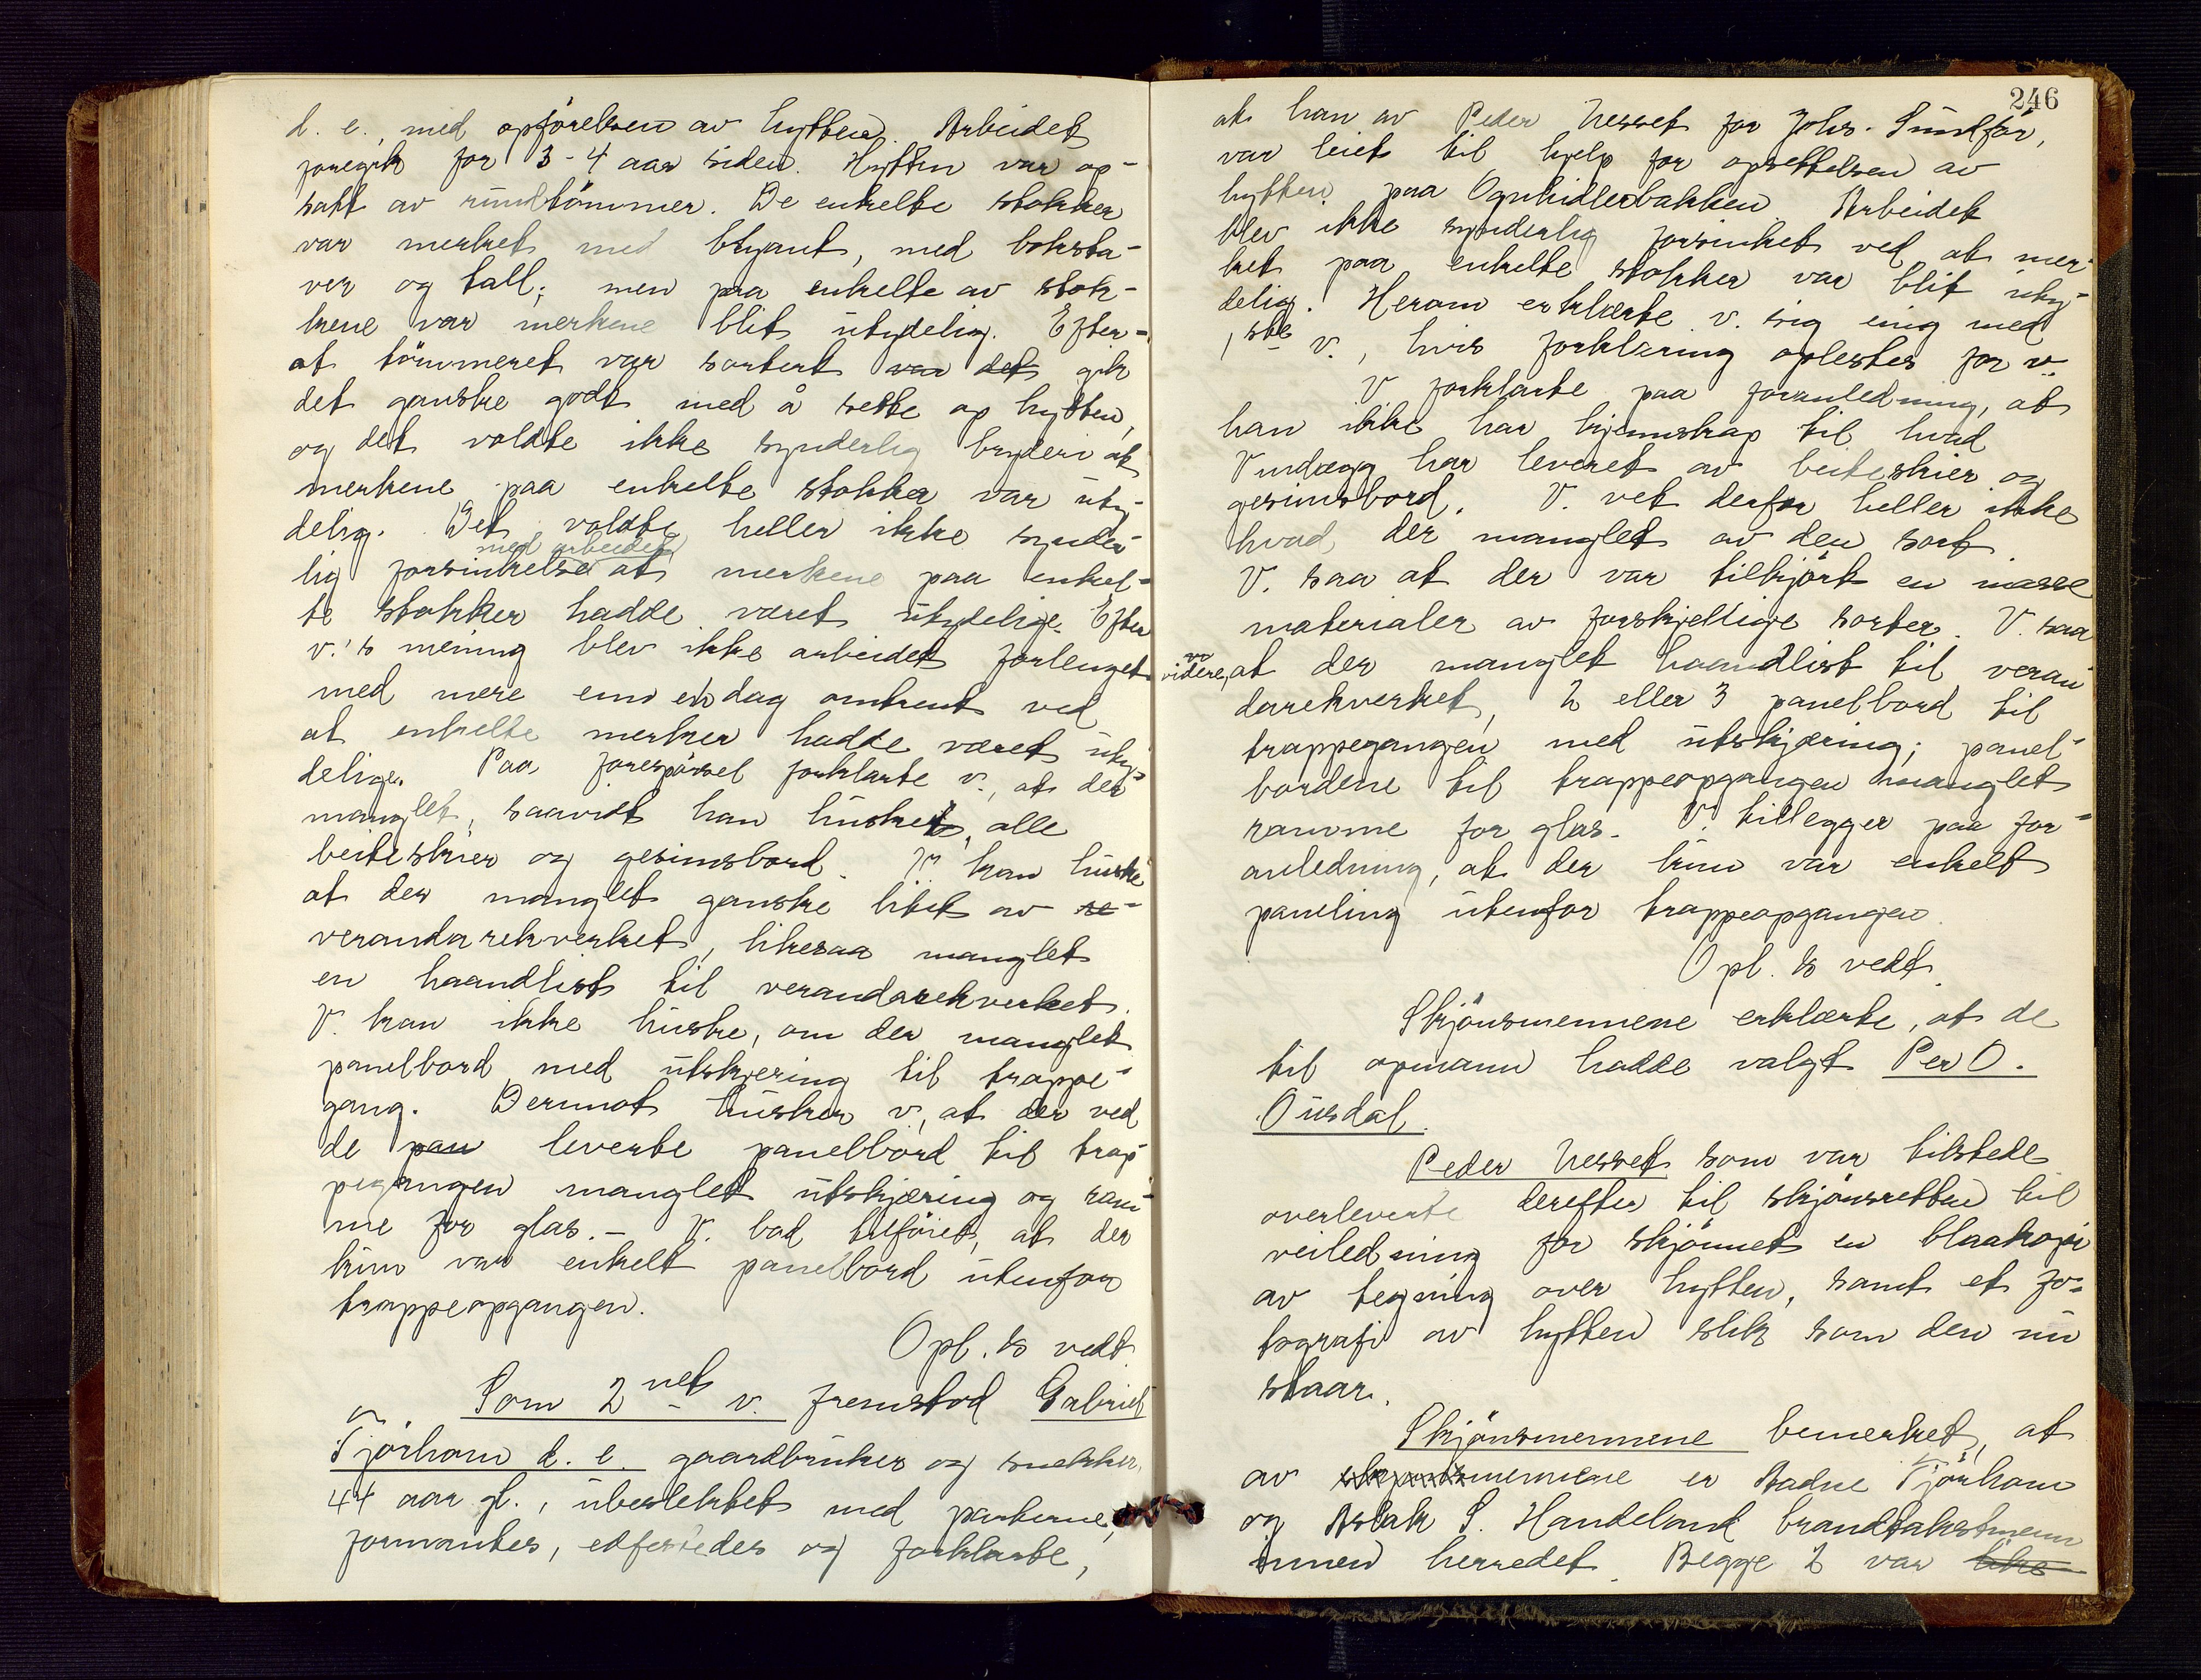 d. e., med opförelsen av hytten. Arbeidet
foregik for 3-4 aar siden. Hytten var op-
satt av rundtömmer. De enkelte stokker
var merket med blyant, med boksta-
ver og tall; men paa enkelte av stok-
kene var merkene blit utydelig. Efter-
at tömmeret var sortert var det gik
det ganske godt med å sette op hytten,
og det voldte ikke synderlig bryderi at
merkene paa enkelte stokker var uty-
delig. Det voldte heller ikke synder-
med arbeidet
lig forsinkelse at merkene paa enkel-
te stokker hadde været utydelige. Efter
v.'s mening blev ikke arbeidet forlenget
med mere enn en dag omtrent ved
at enkelte merker hadde været uty-
delige. Paa forespörsel forklarte v., at der
manglet, saavidt han husket, alle
beiteskier og gesimsbord. V. kan huske
at der manglet ganske litet av re-
verandarekverket, likesaa manglet
en haandlist til verandarekverket.
V. kan ikke huske, om der manglet
panelbord med utskjering til trappe-
gang. Derimot husker v., at der ved
de pan leverte panelbord til trap-
pegangen manglet utskjæring og ram-
me for glas. - V. bad tilföiet, at der
kun var enkelt panelbord utenfor
trappeopgangen.
Opl. & vedt.
Som 2net v. fremstod Gabriel
Tjörhom d. e. gaardbruker og snekker,
44 aar gl., ubeslektet med parterne,
formantes, edfestedes og forklarte,
246
at han av Peder Nesset for Johs. Sundför,
var leiet til hjelp for opsettelsen av
hytten paa Ognhidlerbakken. Arbeidet
blev ikke synderlig forsinket ved at mer-
ket paa enkelte stokker var blit uty-
delig. Herom erklærte v. sig enig med
1ste v., hvis forklaring oplestes for v.
V. forklarte paa foranledning, at
han ikke har kjennskap til hvad
Vindægg har leveret av beiteskier og
gesimsbord. V. vet derfor heller ikke
hvad der manglet av den sort.
V. saa at der var tilkjört en masse
materialer av forskjellige sorter. V. saa
videre, at der manglet haandlist til veran-
darekverket, 2 eller 3 panelbord til
trappegangen med utskjæring; panel-
bordene til trappeopgangen manglet
ramme for glas. V. tillegger paa for-
anledning, at der kun var enkelt
paneling utenfor trappeopgangen.
Opl. & vedt.
Skjönsmennene erklærte, at de
til opmann hadde valgt Per O.
Ousdal.
Peder Nesset som var tilstede
overleverte derefter til skjönsretten til
veiledning for skjönnet en blaakopi
av tegning over hytten, samt et fo-
tografi av hytten slik som den nu
staar.
Skjönsmennene bemerket, at
av skjönsmennene er Aadne Tjörhom
og Aslak S. Handeland brandtakstmenn
innen herredet. Begge 2 var likre